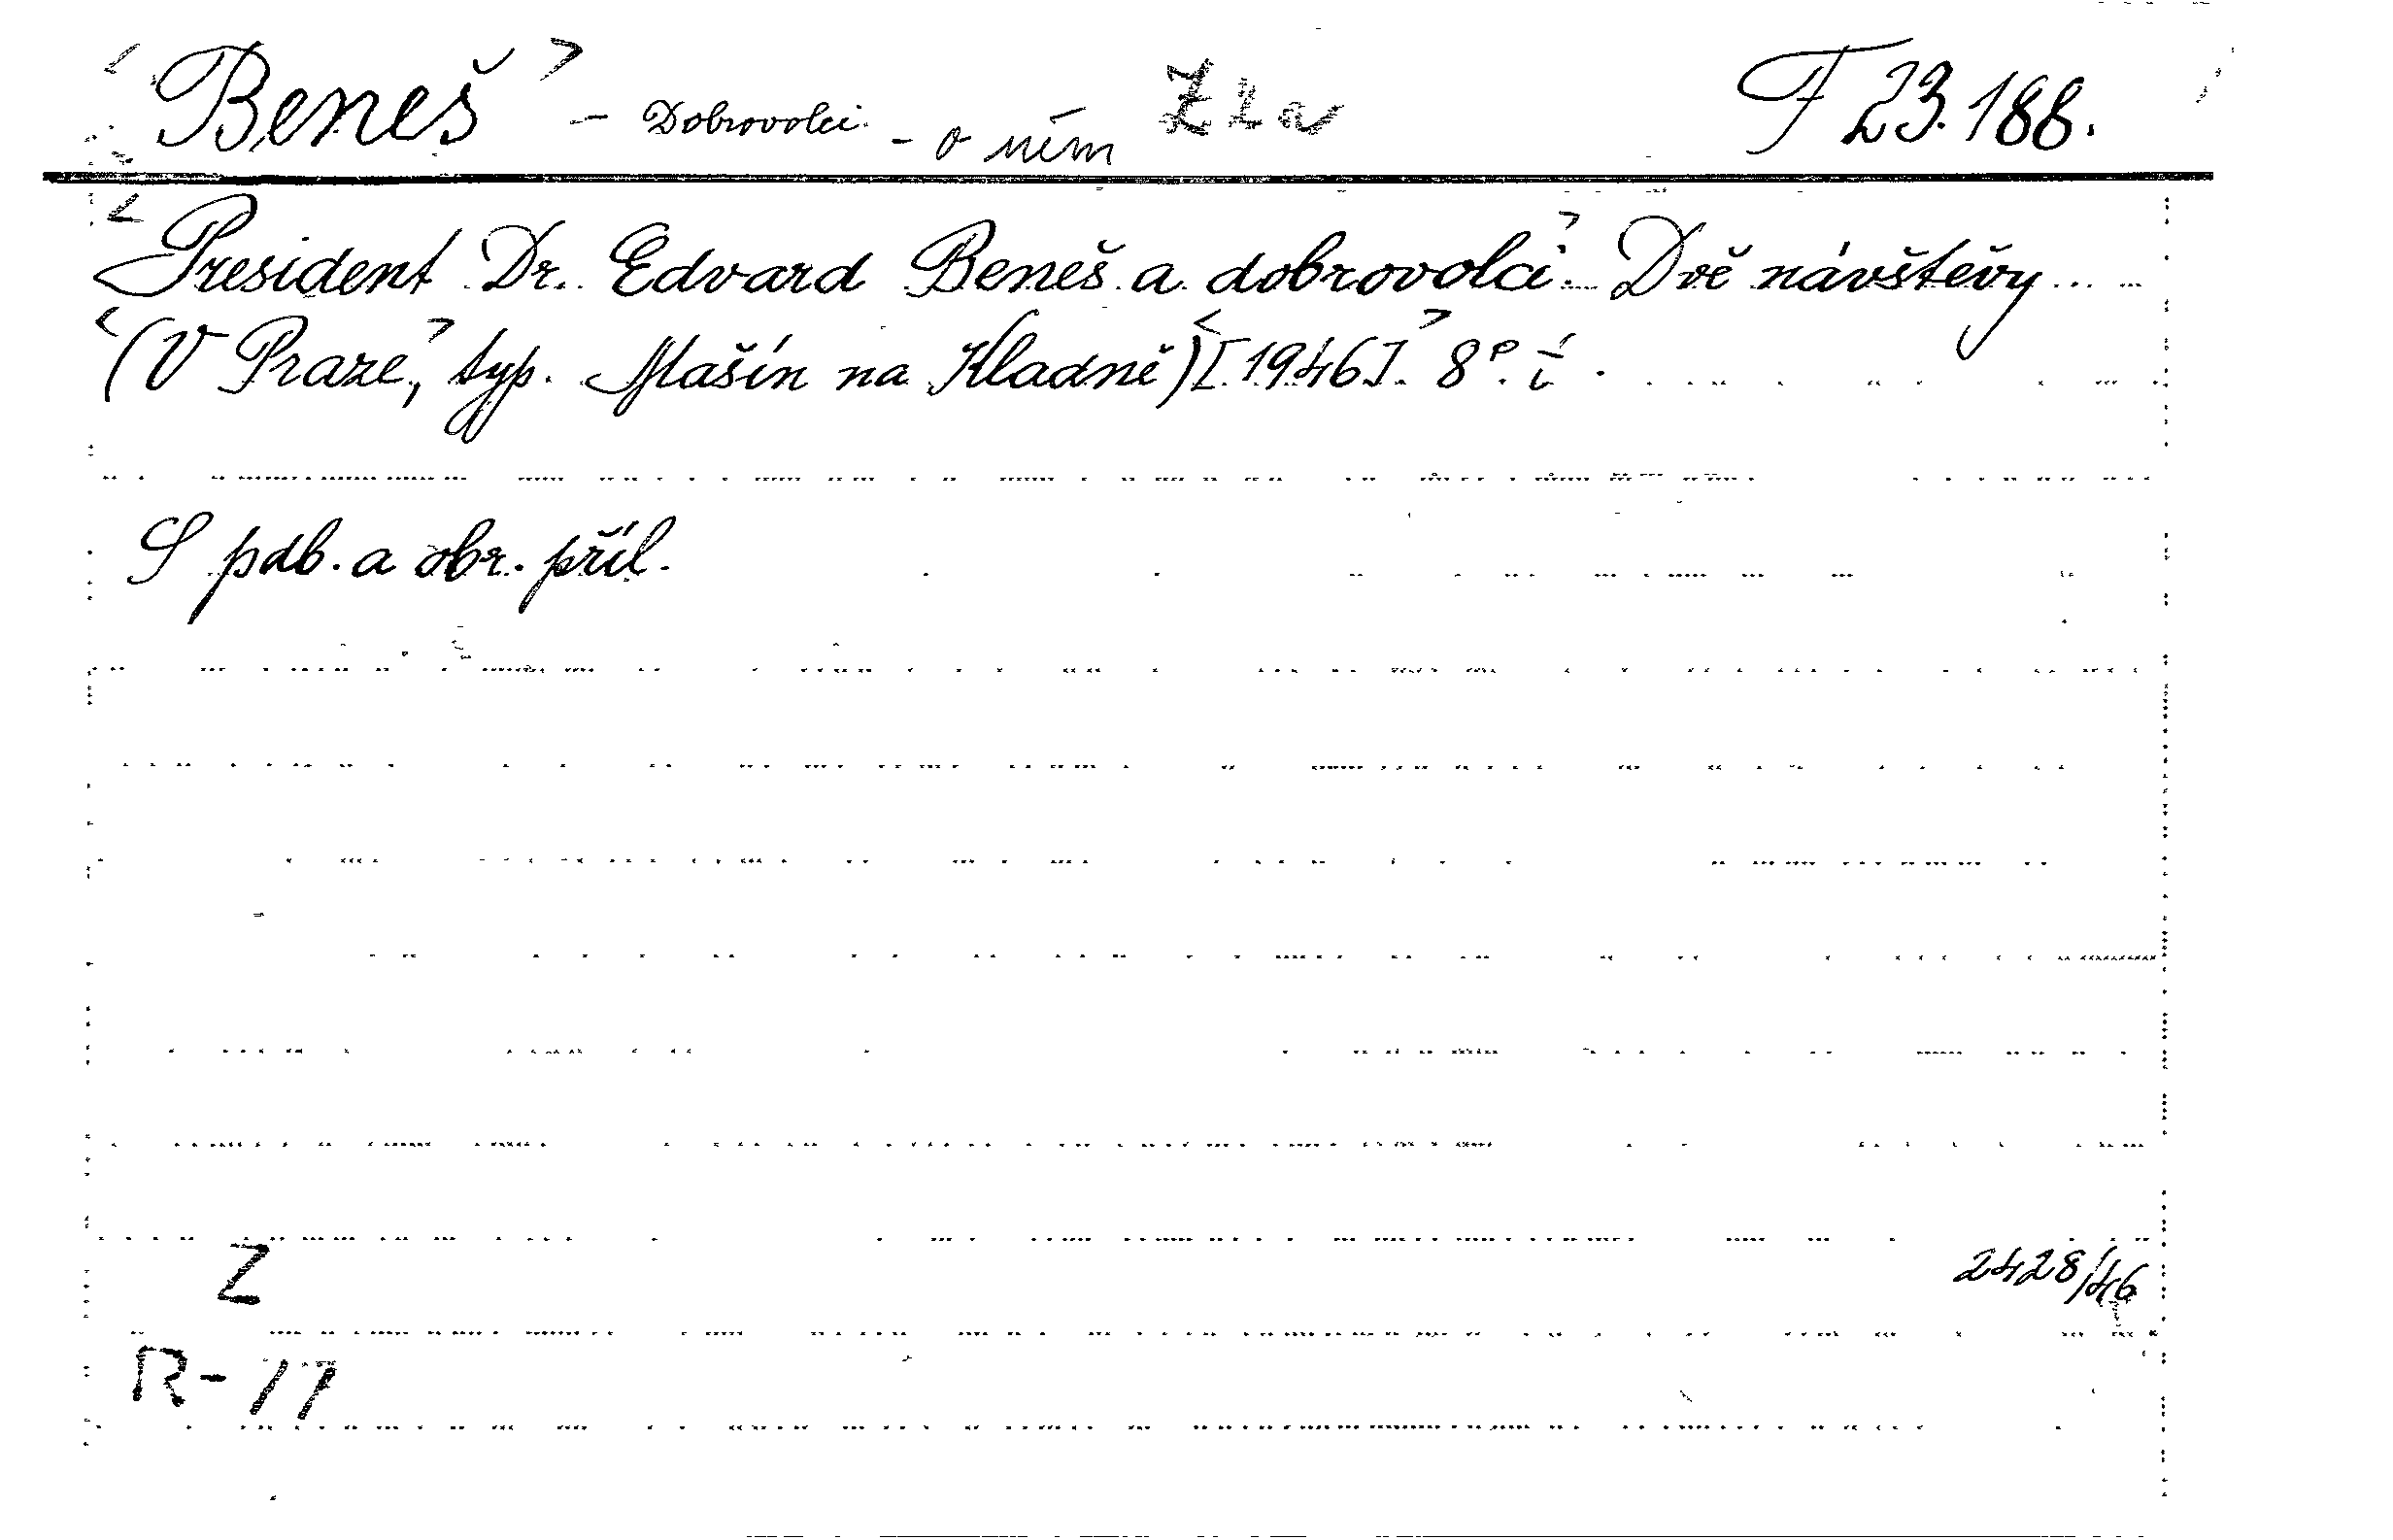 <Beneš> - Dobrovolci - o něm Z 2 a F 23.188.
<President Dr. Edvard Beneš a dobrovolci>. Dvě návštěvy...
<(V Praze>, typ. Mašín na Kladně) <[1946]>. 8°. i.
S pdb. a obr. příl.
Z
2428/46
R-77